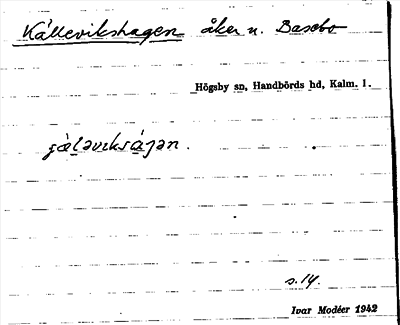 Källevikshagen åker u. Basebo
Högsby sn, Handbörds hd, Kalm. l.
s.14.
Ivar Modéer 1942